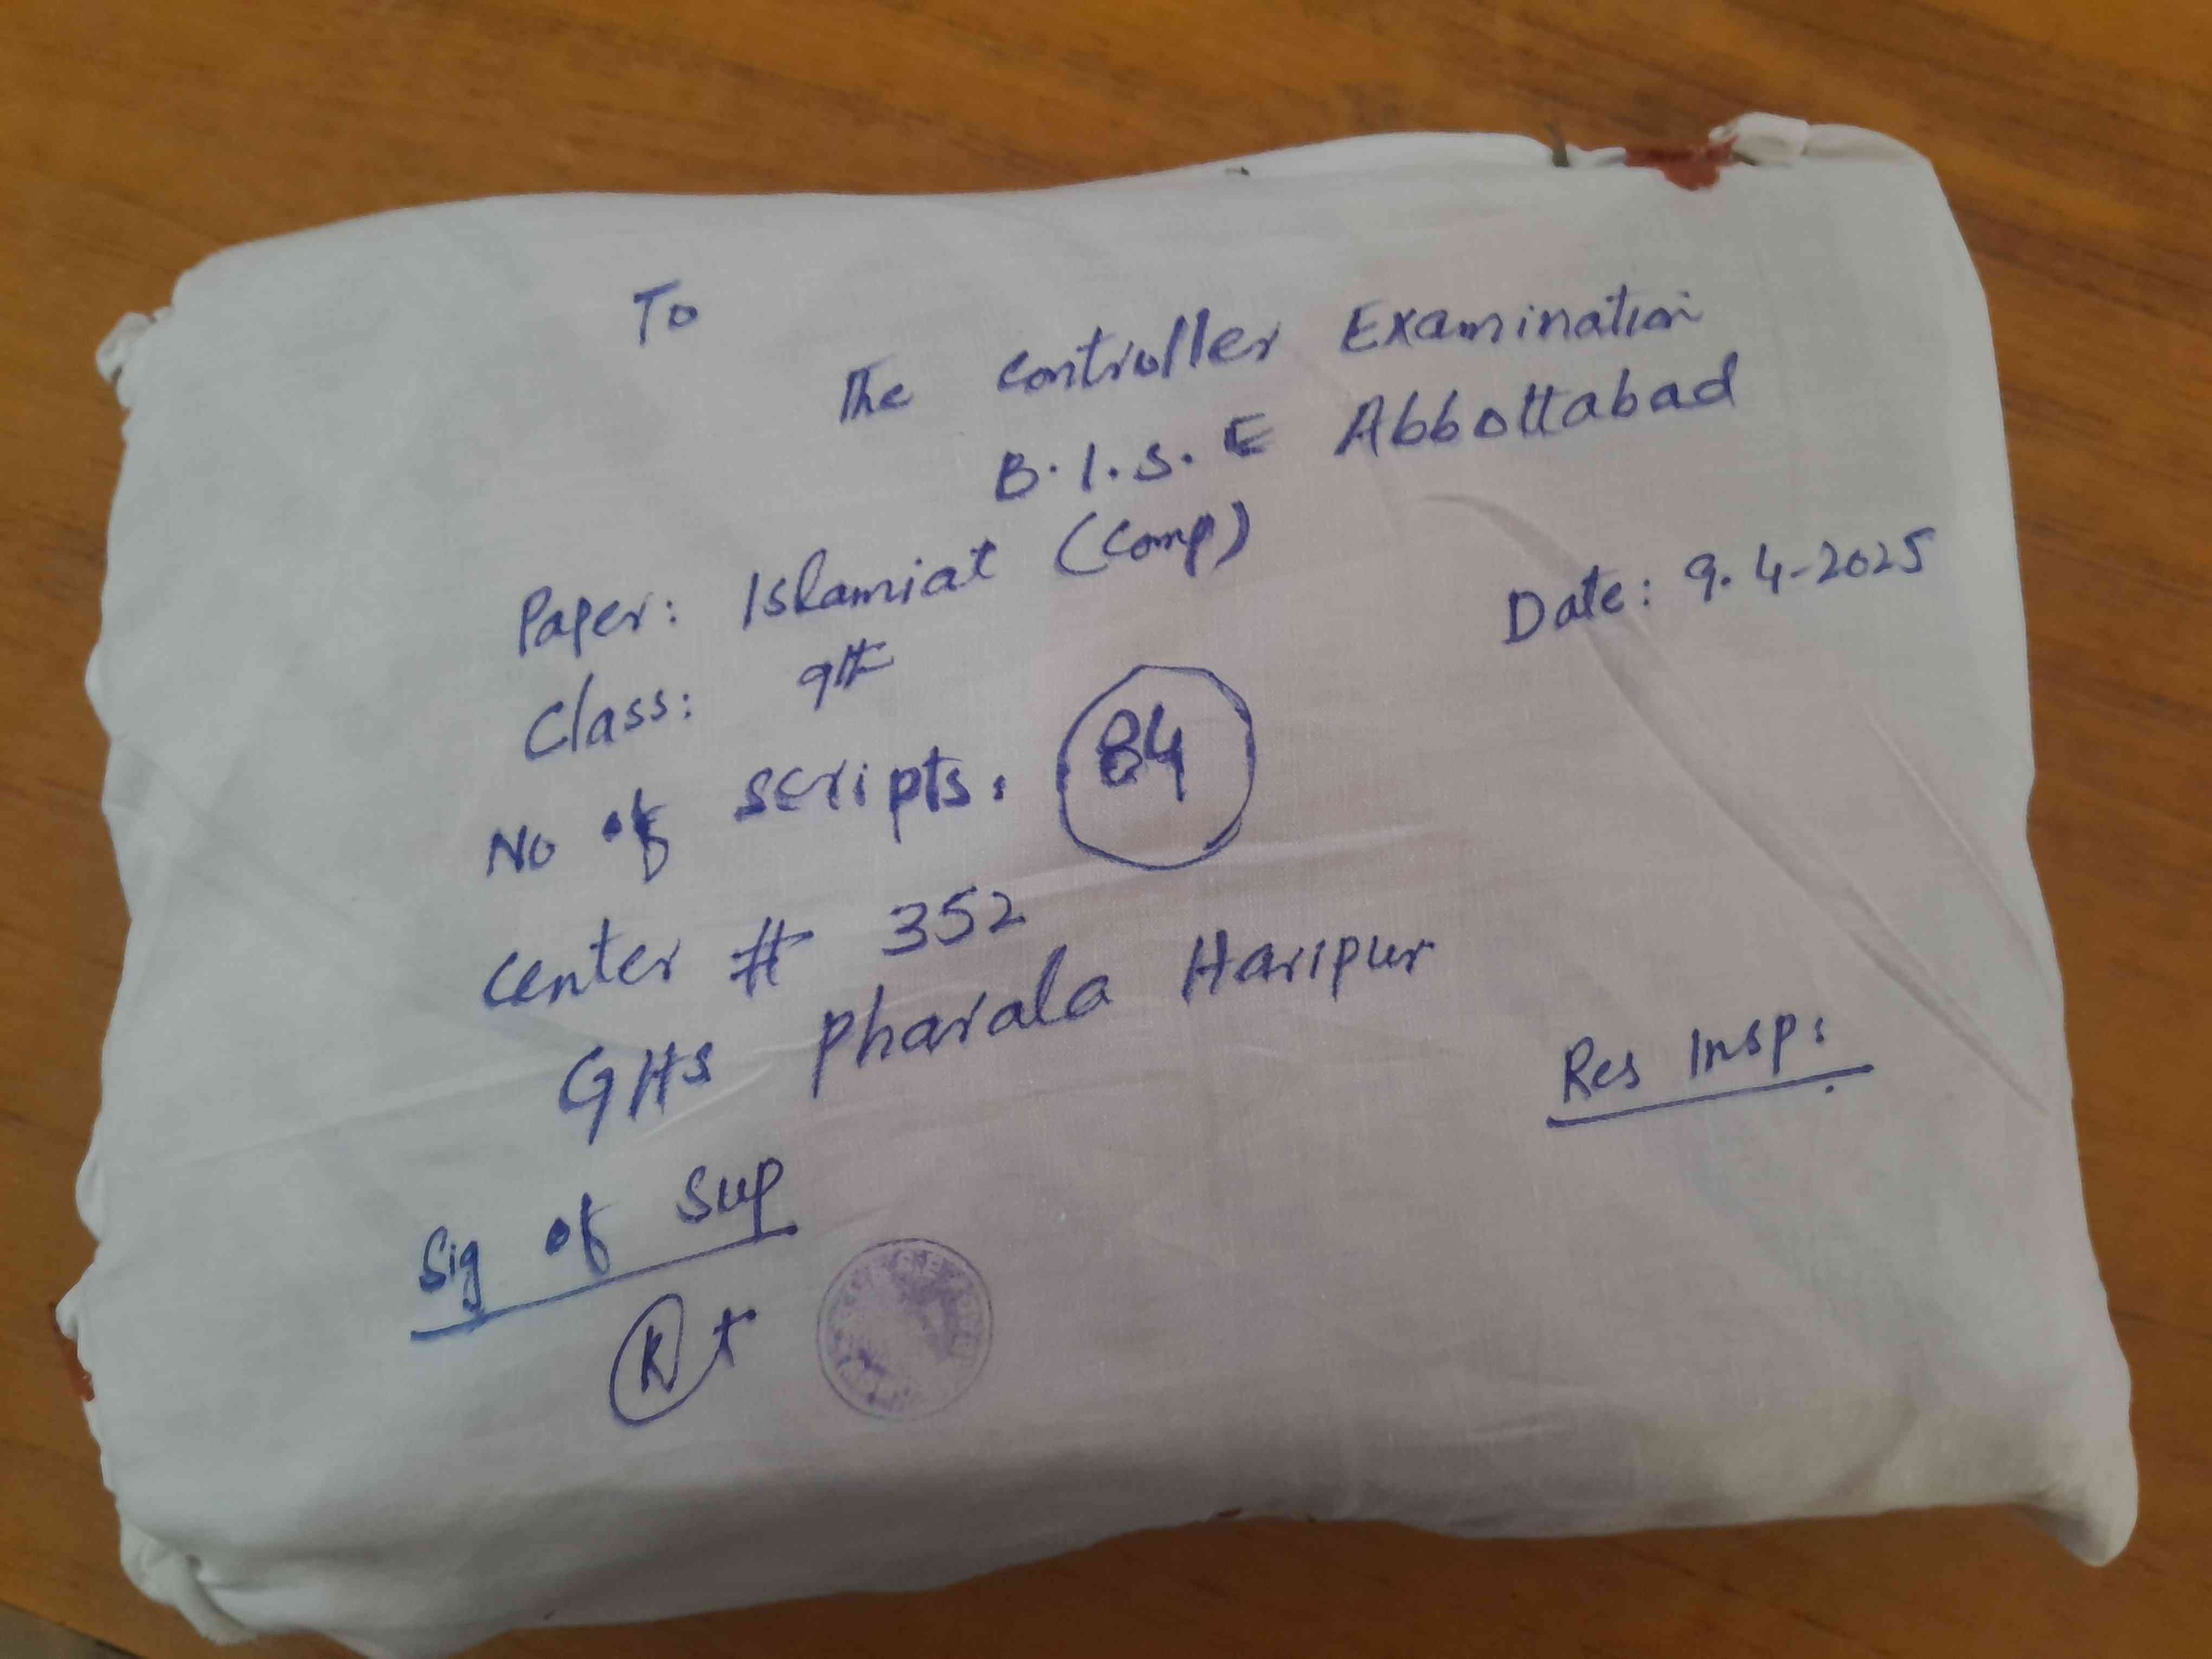 To
The Controller Examination
B.I.S.E Abbottabad
Paper: Islamiat (Comp)
Date: 9.4-2025
Class: 9th
No of scripts: 84
Center # 352
GHS Pharala Haripur
Res Insp:
Sig of Sup